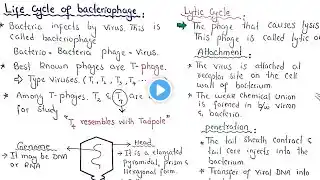 Life Cycle of bacteriophage:
* Bacteria infects by virus. This is
called bacteriophage
Bacteria = Bacteria phage = Virus.
* Best known phages are T-phage.
→ Type viruses (T₁, T₂, T₃, T₄...T₇)
* Among T-phages, T₂ & T₄ are
for study
"T₄ resembles with Tadpole"
Genome
→ It may be DNA
or RNA
Head
→ It is a elongated
pyramidal, prism &
hexagonal form.
Lytic Cycle:
→ The phage that causes lysis
This phage is called lytic
Attachment:
→ The virus is attached at
receptor site on the cell
wall of bacterium.
→ The weak chemical union
is formed in b/w virion
& bacterium.
penetration:
→ The tail sheath contract &
tail core injects into the
bacterium
→ Transfer of viral DNA into